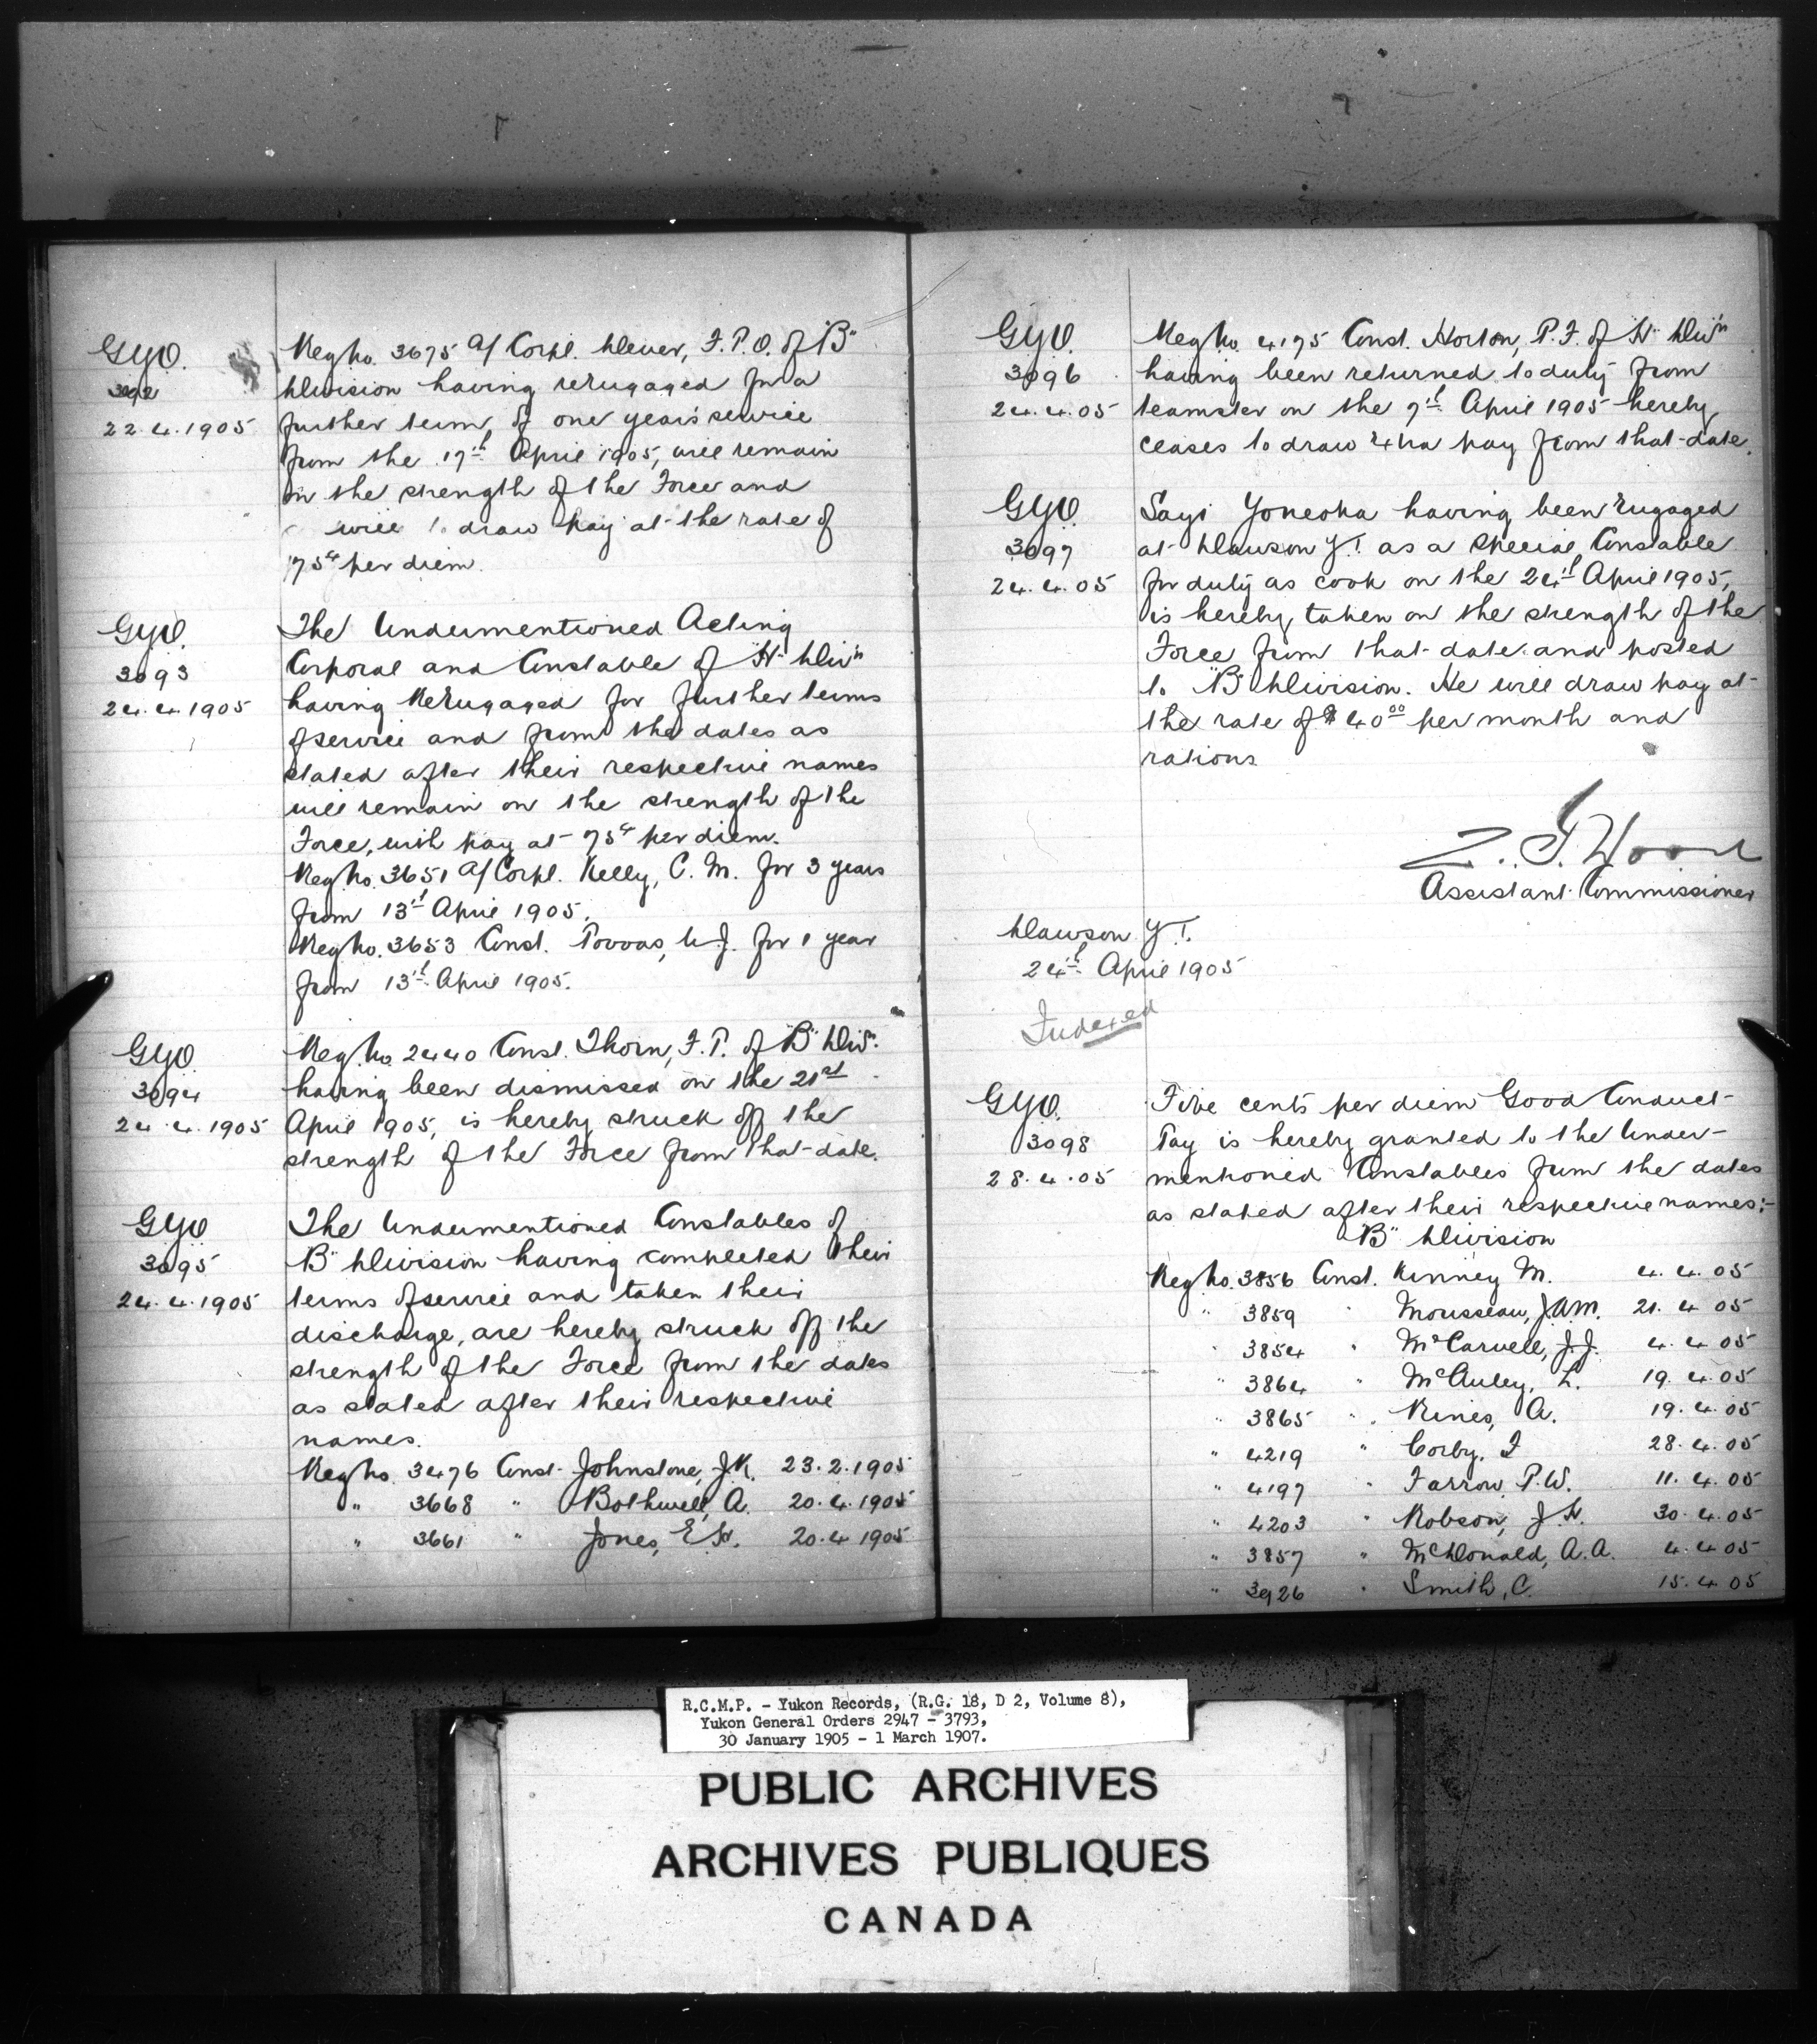 G.Y.O.
3092
22.4.1905
Reg No. 3675 a/ Corpl. Dever, F.P.O. of "B"
Division having reengaged for a
further term, of one year's service
from the 17th April 1905, will remain
on the strength of the Force and
will to draw pay at the rate of
75¢ per diem.
G.Y.O.
3093
24.4.1905
The Undermentioned Acting
Corporal and Constable of "H" Divn
having Reengaged for further terms
of service and from the dates as
stated after their respective names
will remain on the strength of the
Force, with pay at 75¢ per diem.
Reg No. 3651 a/ Corpl. Kelly, C. M. for 3 years
from 13th April 1905.
Reg No. 3653 Const. J. for 1 year
from 13th April 1905.
G.Y.O.
3094
24.4.1905
Reg. No. 2440 Const. Thorn, F. P. of "B" Div.
having been dismissed on the 21st
April 1905, is hereby struck off the
strength of the Force from that date.
G.Y.O
3095
24.4.1905
The Undermentioned Constables of
"B" Division having completed their
terms of service and taken their
discharge, are hereby struck off the
strength of the Force from the dates
as stated after their respective
names.
Reg No. 3476 Const. Johnstone, J.K. 23.2.1905
" 3668 " Bothwell, A. 20.4.1905
" 3661 " Jones, E.H. 20.4.1905
G.Y.O.
3096
24.4.05
Reg No. 4175 Const. Horton, P.F. of "H" Divn
having been returned to duty from
teamster on the 7th April 1905 hereby
ceases to draw xtra pay from that date.
G.Y.O.
3097
24.4.05
Sayi Yoneoka having been engaged
at Dawson Y.T. as a Special Constable
for duty as cook on the 24th April 1905,
is hereby taken on the strength of the
Force from that date and posted
to "B" Division. He will draw pay at
the rate of $40.00 per month and
rations
Z. T. Wood
Assistant Commissioner
Dawson Y.T.
24th April 1905
Indexed
G.Y.O.
3098
28.4.05
Five cents per diem Good Conduct
Pay is hereby granted to the Under-
mentioned Constables from the dates
as stated after their respective names:-
"B" Division
Reg No. 3856 Const. Kinney M. 4.4.05
" 3859 " Mousseau, J.A.M. 21.4.05
" 3854 " McCarvell, J.J. 4.4.05
" 3864 " McAuley, L. 19.4.05
" 3865 " Rines, A. 19.4.05
" 4219 " Corby, F 28.4.05
" 4197 " Farrow, P.W. 11.4.05
" 4203 " Robson, J.H. 30.4.05
" 3857 " McDonald, A.A. 4.4.05
" 3926 " Smith, C. 15.4.05
R.C.M.P. - Yukon Records, (R.G. 18, D 2, Volume 8),
Yukon General Orders 2947 - 3793,
30 January 1905 - 1 March 1907.
PUBLIC ARCHIVES
ARCHIVES PUBLIQUES
CANADA